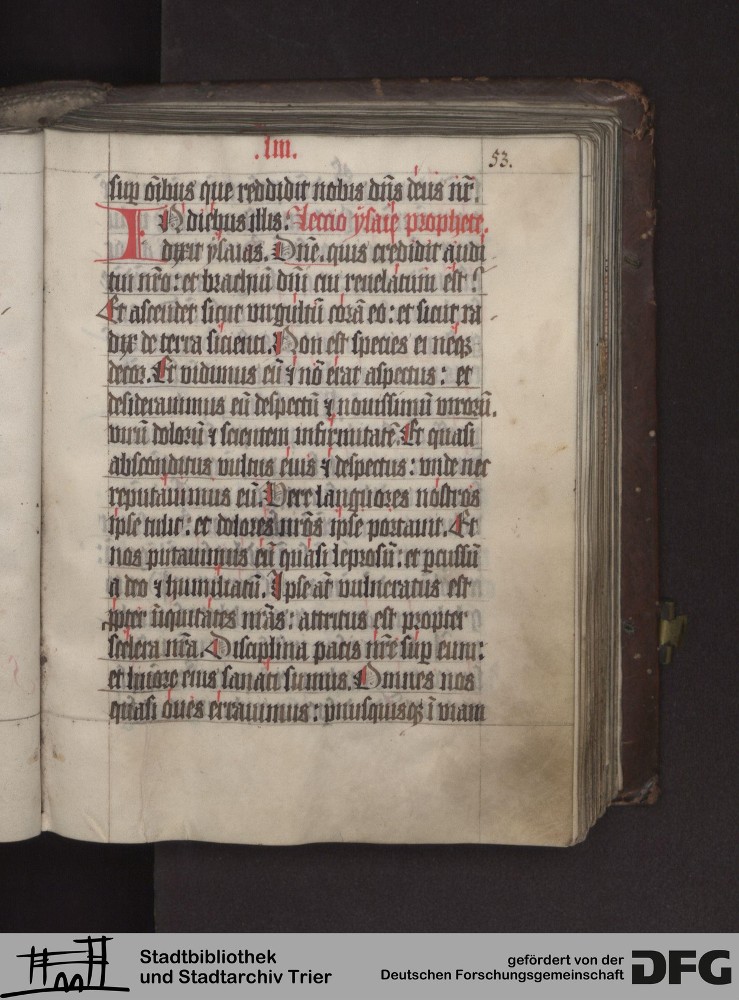 .liii.
53.
sup oībus que reddidit nobis dn̄s deus nr̄.
IN diebus illis. Leccio ysaie prophete.
dixit ysaias. Dn̄e. quis credidit audi
tui nr̄o: et brachiū dn̄i cui reuelatum est?
Et ascendet sicut virgultū corā eo: et sicut ra
dix de terra sicienti. Non est species ei neqꝫ
decor. Et vidimus eū ⁊ nō erat aspectus: et
desiderauimus eū despectū ⁊ nouissimū virorū.
virū dolorū ⁊ scientem infirmitatē. Et quasi
absconditus vultus eius ⁊ despectus: vnde nec
reputauimus eū. Vere languores nostros
ipse tulit: et dolores nr̄os ipse portauit. Et
nos putauimus eū quasi leprosū: et ꝑcussū
a deo ⁊ humiliatū. Ipse aūt vulneratus est
ꝓpter iniquitates nr̄as: attritus est propter
scelera nr̄a. Disciplina pacis nr̄e sup eum:
et liuore eius sanati sumus. Omnes nos
quasi oues errauimus: vnusquisqꝫ ī viam
Stadtbibliothek
und Stadtarchiv Trier
gefördert von der
Deutschen Forschungsgemeinschaft
DFG